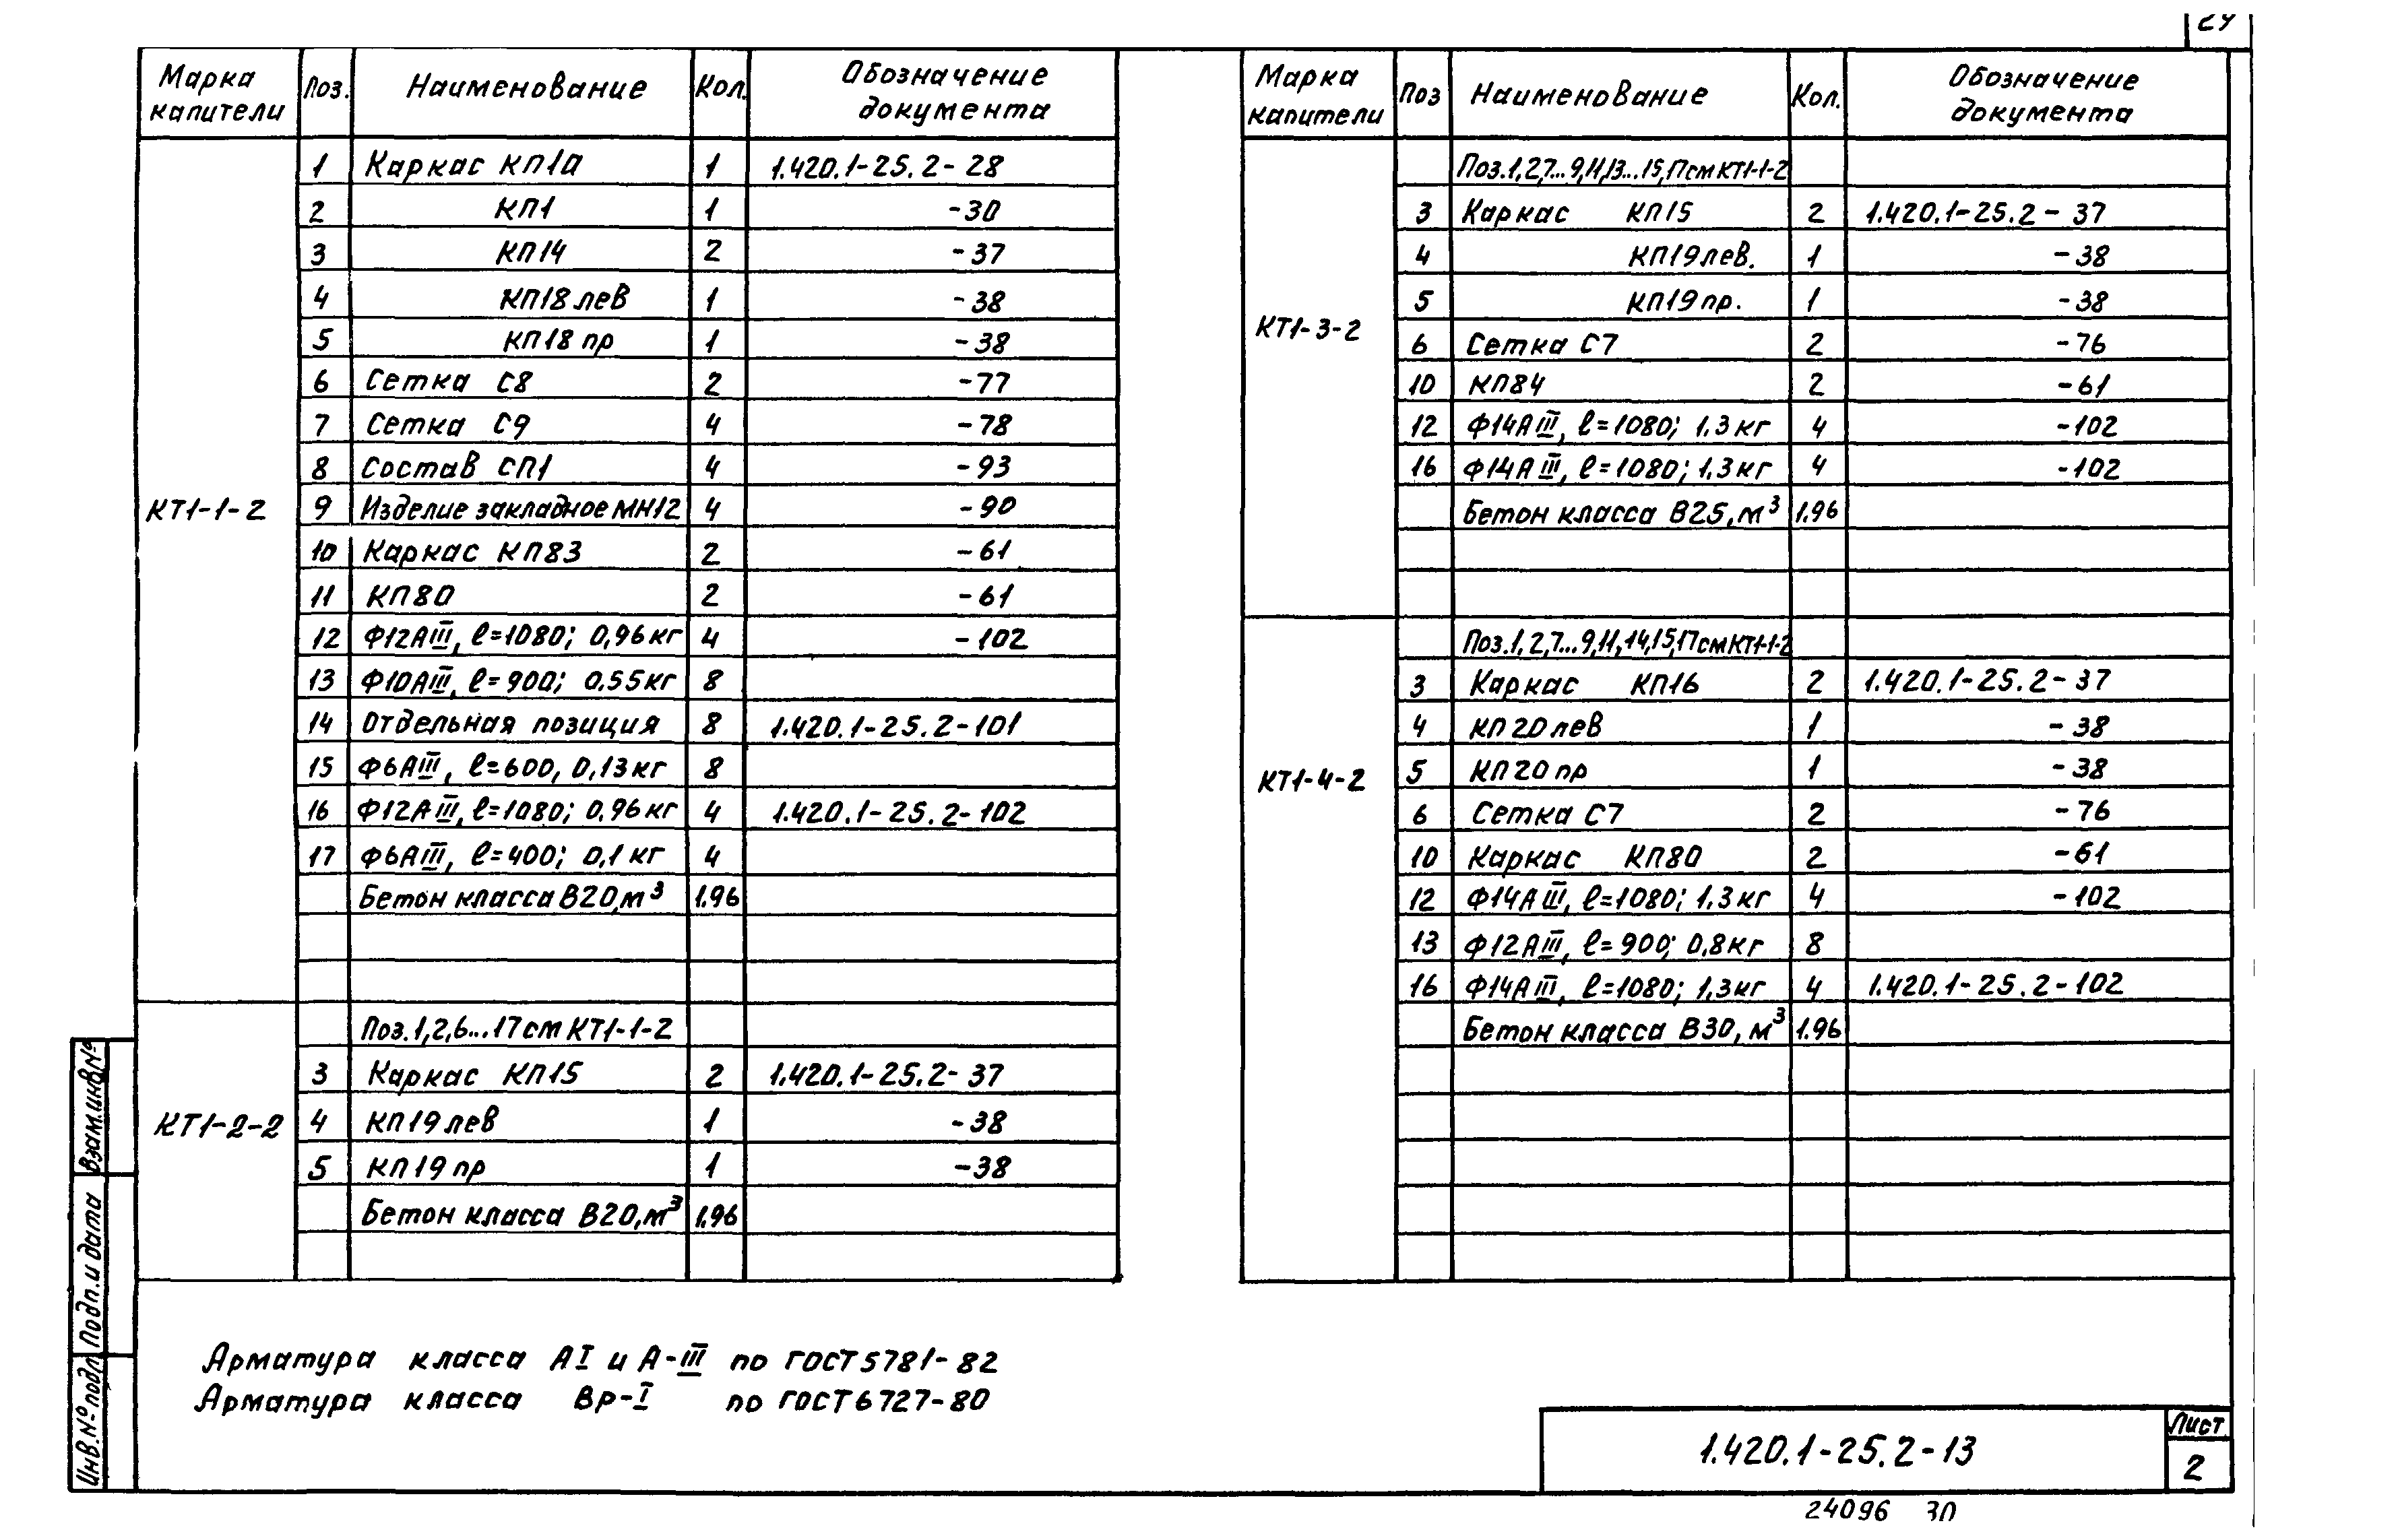 Марка капители | Поз. | Наименование | Кол. | Обозначение документа
КТ1-1-2
1 | Каркас КП1а | 1 | 1.420.1-25.2-28
2 | КП1 | 1 | -30
3 | КП14 | 2 | -37
4 | КП18лев | 1 | -38
5 | КП18пр | 1 | -38
6 | Сетка С8 | 2 | -77
7 | Сетка С9 | 4 | -78
8 | Состав СП1 | 4 | -93
9 | Изделие закладное МН12 | 4 | -90
10 | Каркас КП83 | 2 | -61
11 | КП80 | 2 | -61
12 | Ф12АIII, ℓ=1080; 0,96кг | 4 | -102
13 | Ф10АIII, ℓ=900; 0.55кг | 8
14 | Отдельная позиция | 8 | 1.420.1-25.2-101
15 | Ф6АIII, ℓ=600, 0,13кг | 8
16 | Ф12АIII, ℓ=1080; 0,96кг | 4 | 1.420.1-25.2-102
17 | Ф6АIII, ℓ=400; 0,1кг | 4
Бетон класса В20,м³ | 1.96
КТ1-2-2
Поз.1,2,6...17см КТ1-1-2
3 | Каркас КП15 | 2 | 1.420.1-25.2-37
4 | КП19лев | 1 | -38
5 | КП19пр | 1 | -38
Бетон класса В20,м³ | 1.96
Арматура класса АI и А-III по ГОСТ5781-82
Арматура класса Вр-I по ГОСТ6727-80
Марка капители | Поз | Наименование | Кол. | Обозначение документа
КТ1-3-2
Поз.1,2,7...9,11,13...15,17смКТ1-1-2
3 | Каркас КП15 | 2 | 1.420.1-25.2-37
4 | КП19лев. | 1 | -38
5 | КП19пр. | 1 | -38
6 | Сетка С7 | 2 | -76
10 | КП84 | 2 | -61
12 | Ф14АIII, ℓ=1080; 1.3кг | 4 | -102
16 | Ф14АIII, ℓ=1080; 1,3кг | 4 | -102
Бетон класса В25,м³ | 1.96
КТ1-4-2
Поз.1,2,7...9,11,14,15,17смКТ1-1-2
3 | Каркас КП16 | 2 | 1.420.1-25.2-37
4 | КП20лев | 1 | -38
5 | КП20пр | 1 | -38
6 | Сетка С7 | 2 | -76
10 | Каркас КП80 | 2 | -61
12 | Ф14АIII, ℓ=1080; 1.3кг | 4 | -102
13 | Ф12АIII, ℓ=900; 0,8кг | 8
16 | Ф14АIII, ℓ=1080; 1,3кг | 4 | 1.420.1-25.2-102
Бетон класса В30,м³ | 1.96
Взам.инв№
Подп.и дата
Инв.№подл
1.420.1-25.2-13
Лист
2
24096 30